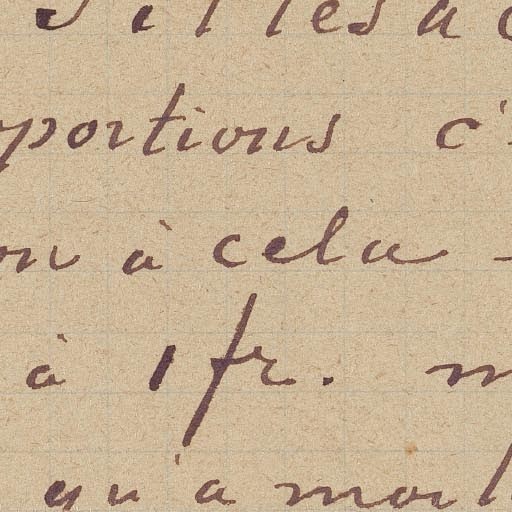 s'il les a
portions c'
on à cela -
à 1 fr. m
qu'à moi